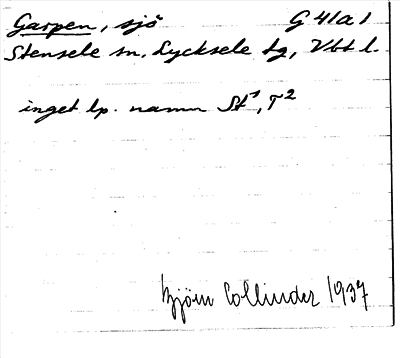 Garpen, sjö G 41 a 1
Stensele sn, Lycksele tg, Vbt l.
inget lp. namn St¹, T²
Björn Collinder 1937